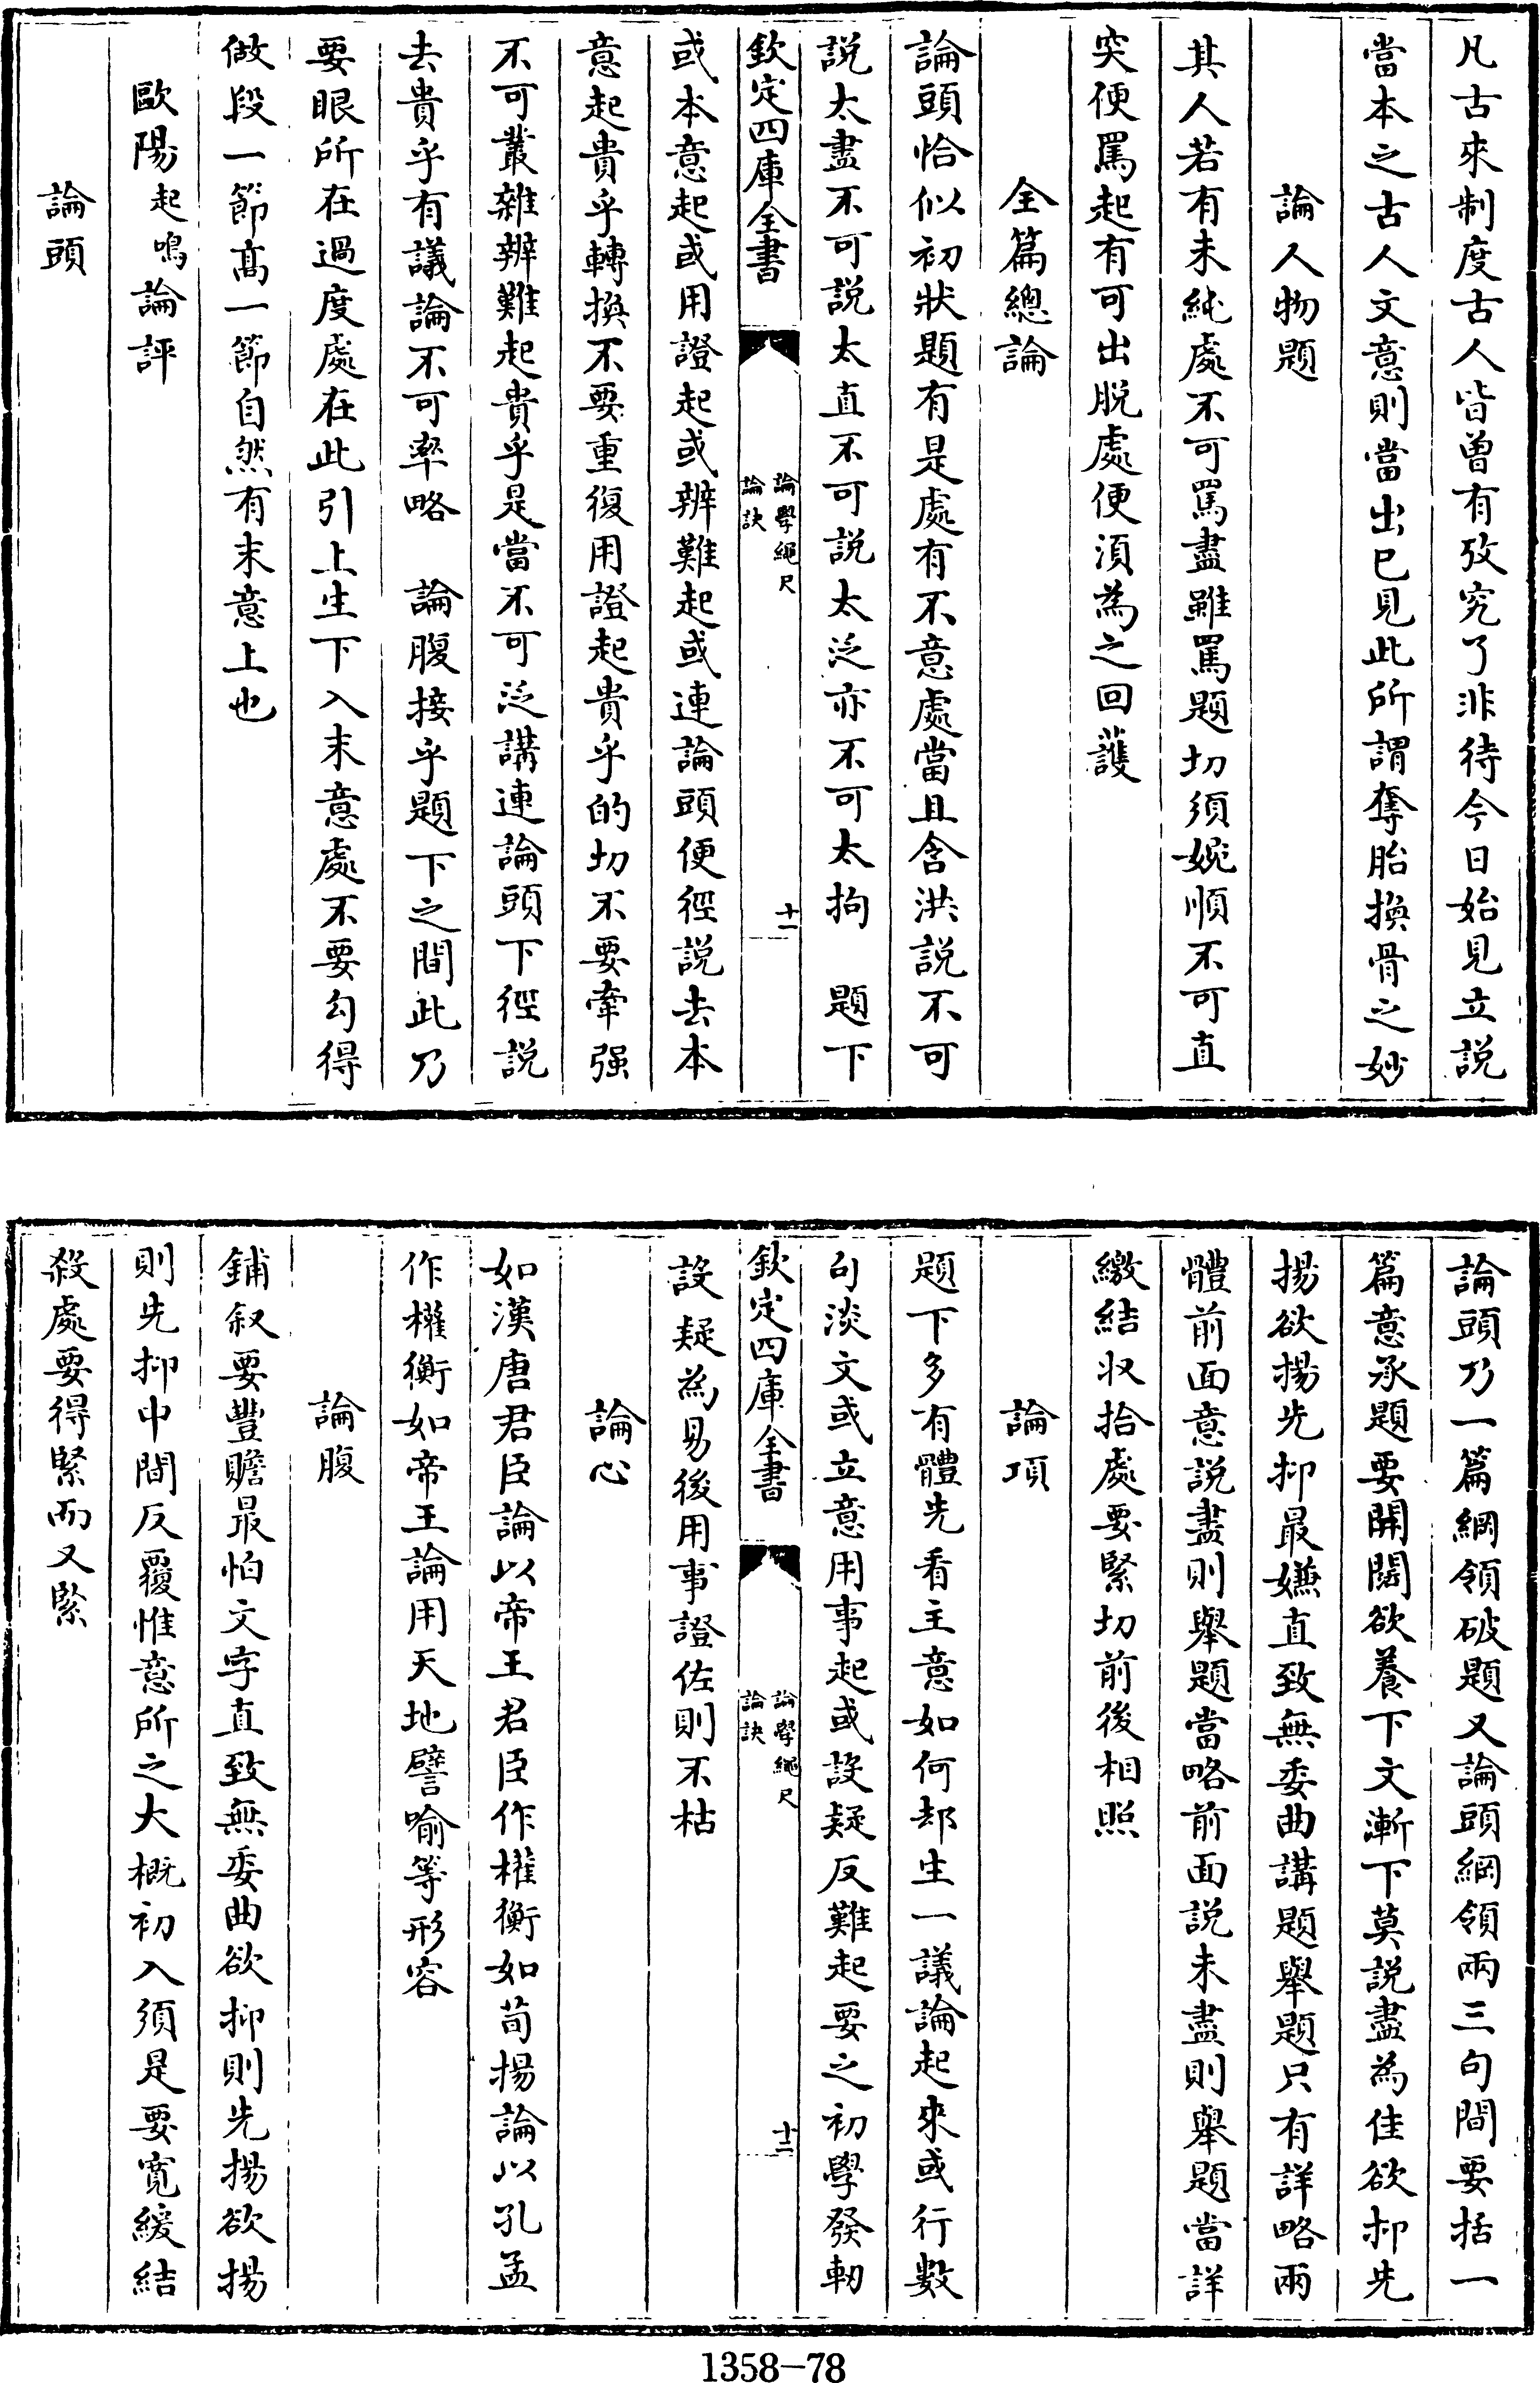 凡古來制度古人皆曾有攷究了非待今日始見立說
當本之古人文意則當出已見此所謂奪胎換骨之妙
論人物題
其人若有未純處不可罵盡雖罵題切須婉順不可直
突便罵起有可出脫處便須為之回護
全篇總論
論頭恰似初狀題有是處有不意處當且含洪說不可
說太盡不可說太直不可說太泛亦不可太拘　題下
欽定四庫全書
論學繩尺
論訣
十一
或本意起或用證起或辨難起或連論頭便徑說去本
意起貴乎轉換不要重復用證起貴乎的切不要牽强
不可叢雜辨難起貴乎是當不可泛講連論頭下徑說
去貴乎有議論不可率略　論腹接乎題下之間此乃
要眼所在過度處在此引上生下入末意處不要勾得
做段一節高一節自然有末意上也
歐陽起鳴論評
論頭
論頭乃一篇綱領破題又論頭綱領兩三句間要括一
篇意承題要開闊欲養下文漸下莫說盡為佳欲抑先
揚欲揚先抑最嫌直致無委曲講題舉題只有詳略兩
體前面意說盡則舉題當略前面說未盡則舉題當詳
繳結收拾處要緊切前後相照
論項
題下多有體先看主意如何却生一議論起來或行數
句淡文或立意用事起或設疑反難起要之初學發軔
欽定四庫全書
論學繩尺
論訣
十二
設疑為易後用事證佐則不枯
論心
如漢唐君臣論以帝王君臣作權衡如荀揚論以孔孟
作權衡如帝王論用天地譬喻等形容
論腹
鋪叙要豐贍最怕文字直致無委曲欲抑則先揚欲揚
則先抑中間反覆惟意所之大概初入須是要寬緩結
殺處要得緊而又緊
1358-78